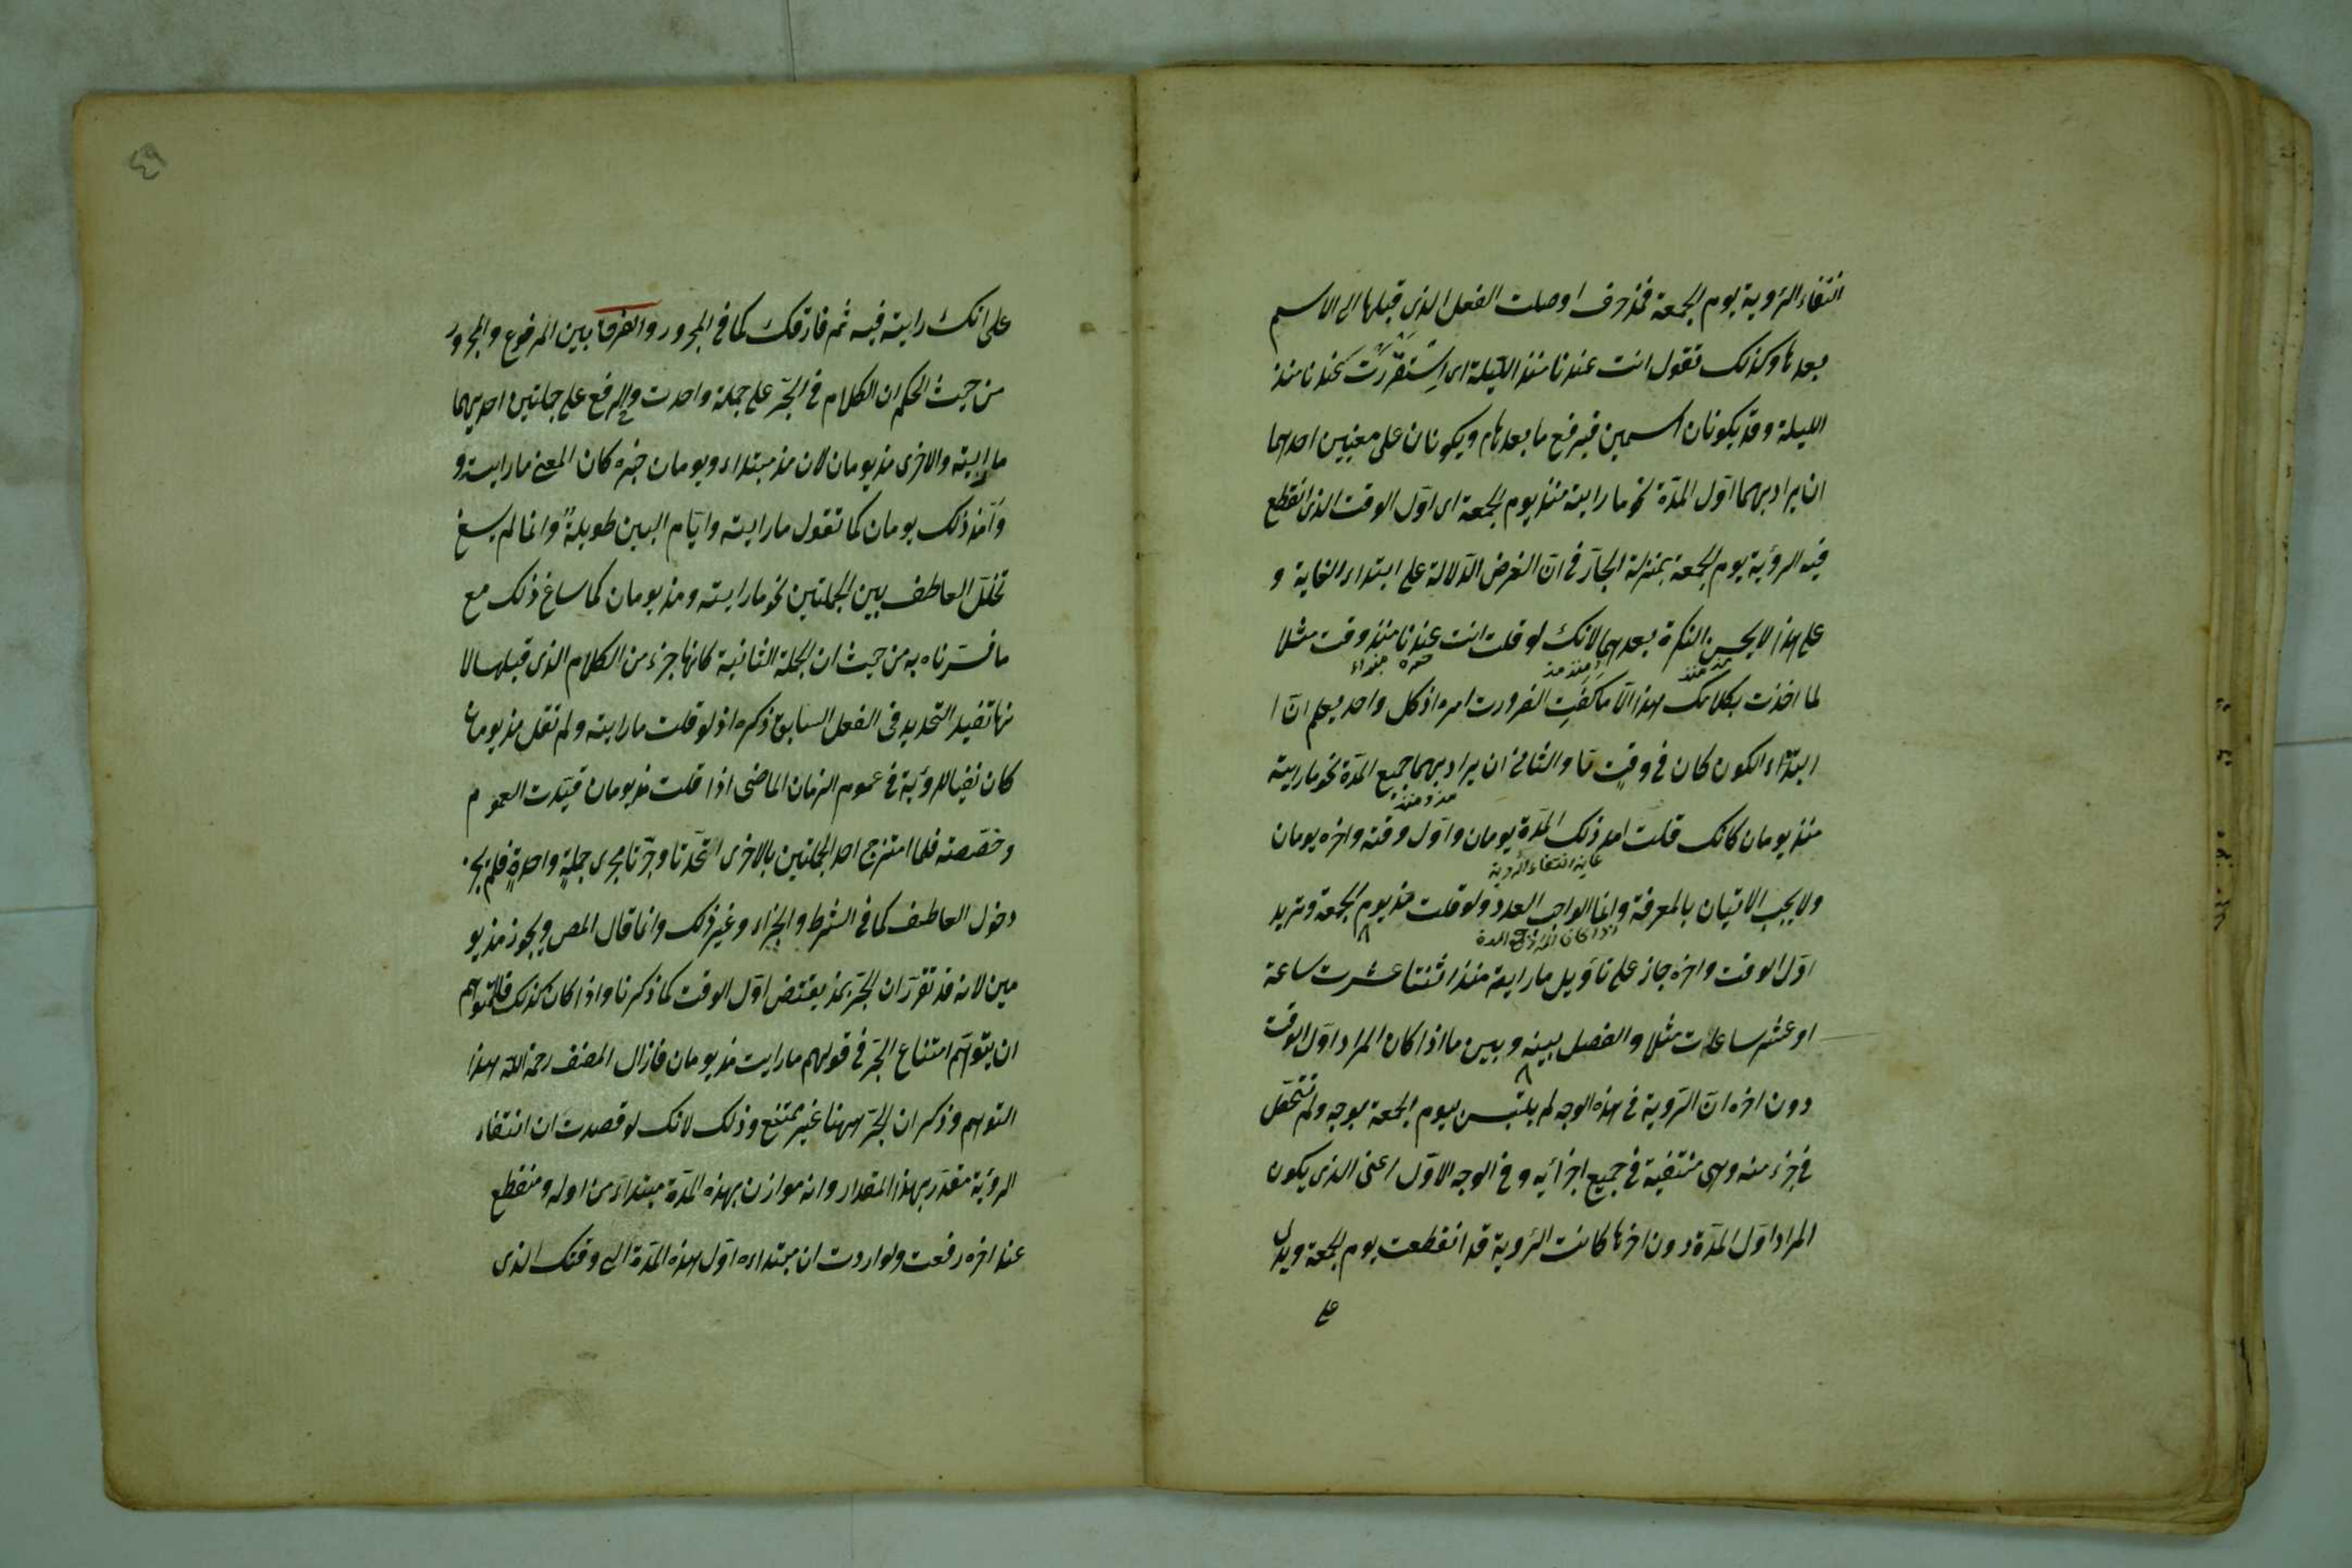 انتفاء الرؤية يوم الجمعة فمذ حرف اوصلت الفعل الذى قبلها الى الاسم
بعدها وكذلك تقول انت عندنا منذ الليلة اى استقررت عندنا منذ
الليلة وقد يكونان اسمين فيرفع ما بعدهما ويكونان على معنيين احدهما
ان يراد بهما اول المدّة نحو ما رايته منذ يوم الجمعة اى اوّل الوقت الذى انقطع
فيه الرؤية يوم الجمعة بمنزلة الجارّ فى انّ الغرض الدّلالة على ابتداء الغاية و
على هذا لا يحسن النكرة بعدهما لانك لو قلت انت عندنا منذ وقت مثلا
مذ منذ
لما اخذت بكلامك هذا الّا ما كفت لضرورت امره اذ كل واحد يعلم انّ ا
ابتداء الكون كان فى وقتٍ ما والثانى ان يراد بهما جميع المدّة نحو ما رايته
مذ ومنذ
منذ يومان كانك قلت امد ذلك المدّة يومان واوّل وقته واخره يومان
غاية انتفاء الرؤية
ولا يجب الاتيان بالمعرفة وانما الواجب العدد ولو قلت مذ يوم الجمعة وتريد
اوّل الوقت واخره جاز على تاويل ما رايته منذ اثنتا عشرت ساعة
او عشر ساعات مثلا والفصل بينه وبين ما اذا كان المراد اوّل الوقت
دون اخره انّ الرّوية فى هذه الوجه لم يلتبس بيوم الجمعة بوجه ولم تتحقّل
فى جزء منه وهى منتفية فى جميع اجزائه وفى الوجه الاوّل اعنى الذى يكون
المراد اوّل المدّة دون اخرها كانت الرّوية قد انقطعت يوم الجمعة ويدل
على
٤٩
على انك رايته فيه ثم فارقك كما فى المجرور والفرق بين المرفوع والمجرور
من حيث الحكم ان الكلام فى الجرّ على جملة واحدت وفى الرفع على جملتين احديهما
ما رايته والاخرى مذ يومان لان مذ مبتداء ويومان خبره كان المعنى ما رايته و
وآمد ذلك يومان كما تقول ما رايته وايّام البين طويلةٌ وانما لم يسغ
تخلل العاطف بين الجملتين نحو ما رايته ومذ يومان كما ساغ ذلك مع
ما فسّرناه به من حيث ان الجملة الثانية كانها جزء من الكلام الذى قبلها لا
نها تفيد التحديد فى الفعل السابق ذكره اذ لو قلت ما رايته ولم تقل مذ يومان
كان نفيا للرؤية فى عموم الزمان الماضى اذا قلت مذ يومان قيّدت العموم
وخصّصته فلما امتزج احد الجملتين بالاخرى اتّحدتا وجرتا مجرى جملةٍ واحدةٍ فلم يجز
دخول العاطف كما فى الشرط والجزاء وغير ذلك وانما قال المص ويجوز مذ يو
مين لانه قد تقرّر ان الجرّ بمذ يقتضى اوّل الوقت كما ذكرنا واذا كان كذلك فللمتوهم
ان يتوهّم امتناع الجرّ فى قولهم ما رايت مذ يومان فازال المصنف رحمة الله هذا
التوهم وذكر ان الجرّ ههنا غير ممتنع وذلك لانك لو قصدت ان انتفاء
الرؤية مقدّر بهذا المقدار وانه موازن بهذه المدّة مبتداء من اوله ومنقطع
عند اخره رفعت ولو اردت ان مبتداءه اوّل هذه المدّة الى وقتك الذى